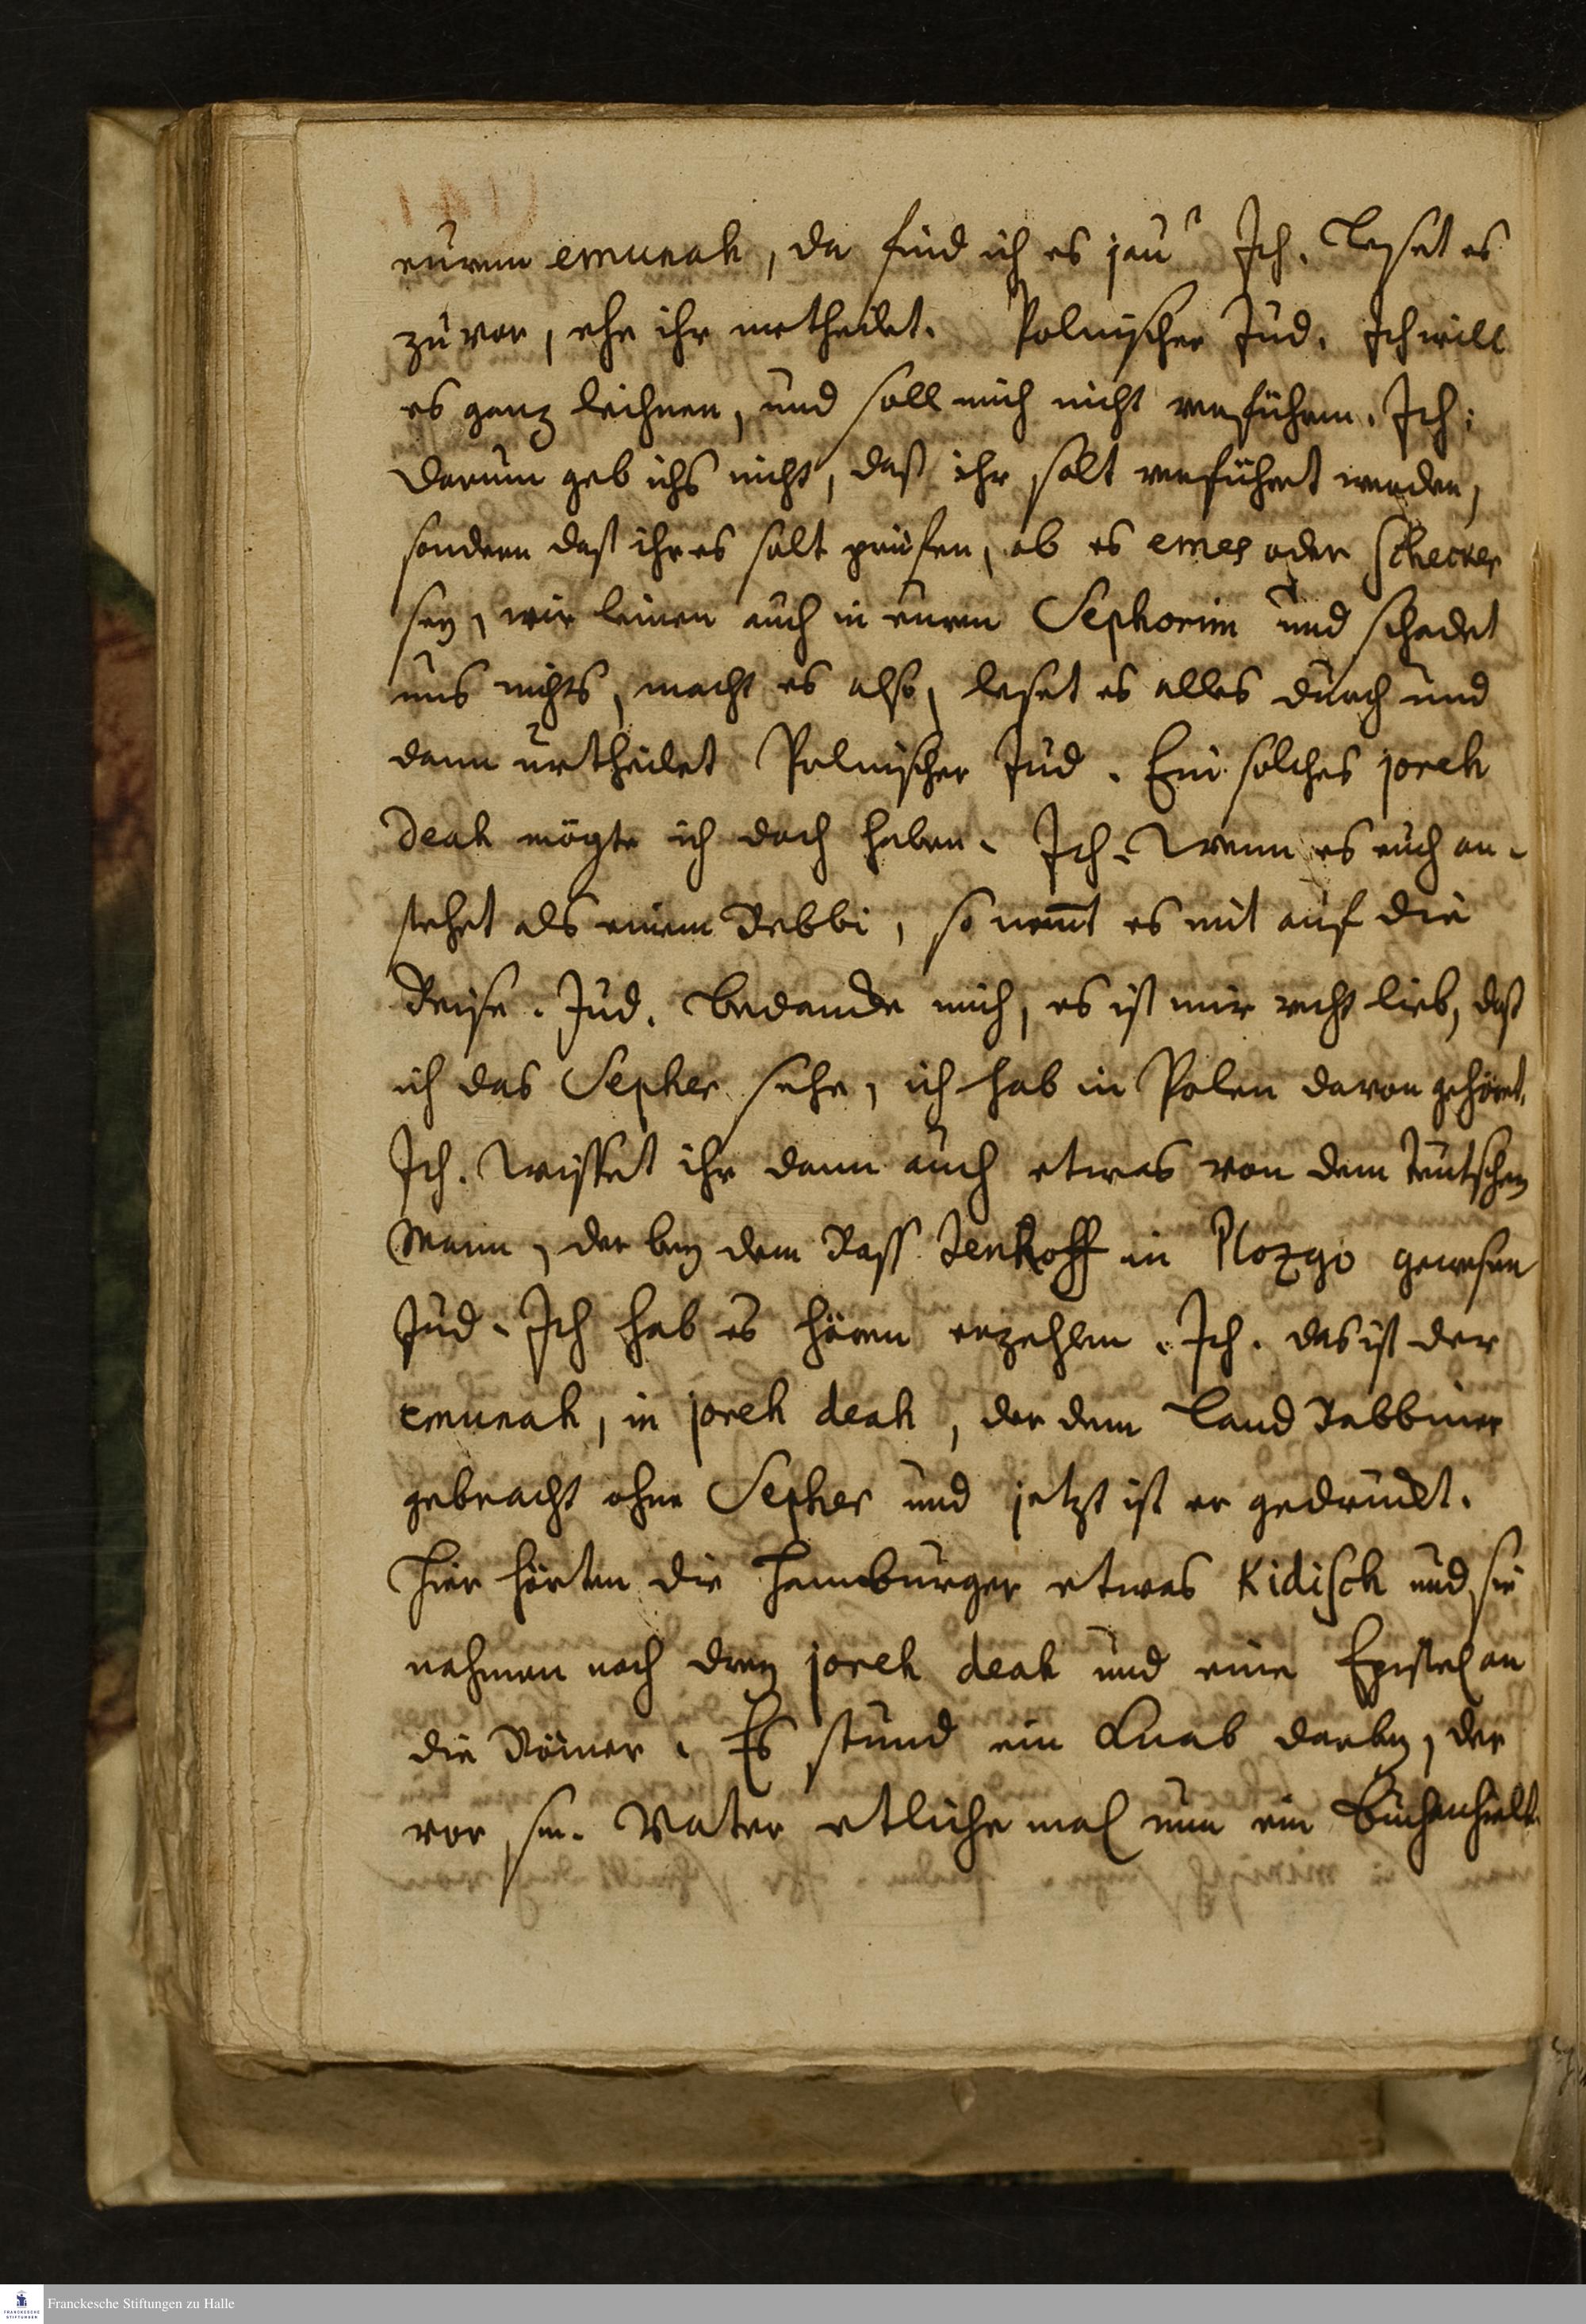 eurem emunah, da find ich es jau? Ich. Leset es
zuvor, ehe ihr urtheilet. Polnischer Jud. Ich will
es ganz leihnen, und soll mich nicht verführen. Ich:
Darum geb ichs nicht, daß ihr solt verführet werden,
sondern daß ihr es solt prüfen, ob es emes oder Schecker
sey, wir leinen auch in euren Sephorim und schadet
uns nichts, macht es also, leset es alles durch und
dann urtheilet Polnischer Jud. Ein solches joreh
deah mögte ich doch haben. Ich. Wenn es euch an-
stehet als einem Rebbi, so nem̅t es mit auf die
Reise. Jud. Bedancke mich, es ist mir recht lieb, daß
ich das Sepher sehe, ich hab in Polen davon gehöret.
Ich. Wisset ihr dann auch etwas von dem teutschen
Mann, der bey dem Raff Jenkoff in Plozgo gewesen
Jud. Ich hab es hören erzehlen. Ich. das ist der
emunah, in joreh deah, der dem Land Rabbiner
gebracht ohne Sepher und jetzt ist er gedruckt.
Hier hörten die Hamburger etwas Kidisch und sie
nahmen noch drey joreh deah und eine Epistel an
die Römer. Es stund ein Knab darbey, der
vor sn. Vater etliche mal um ein Büch anhielt.
Franckesche Stiftungen zu Halle